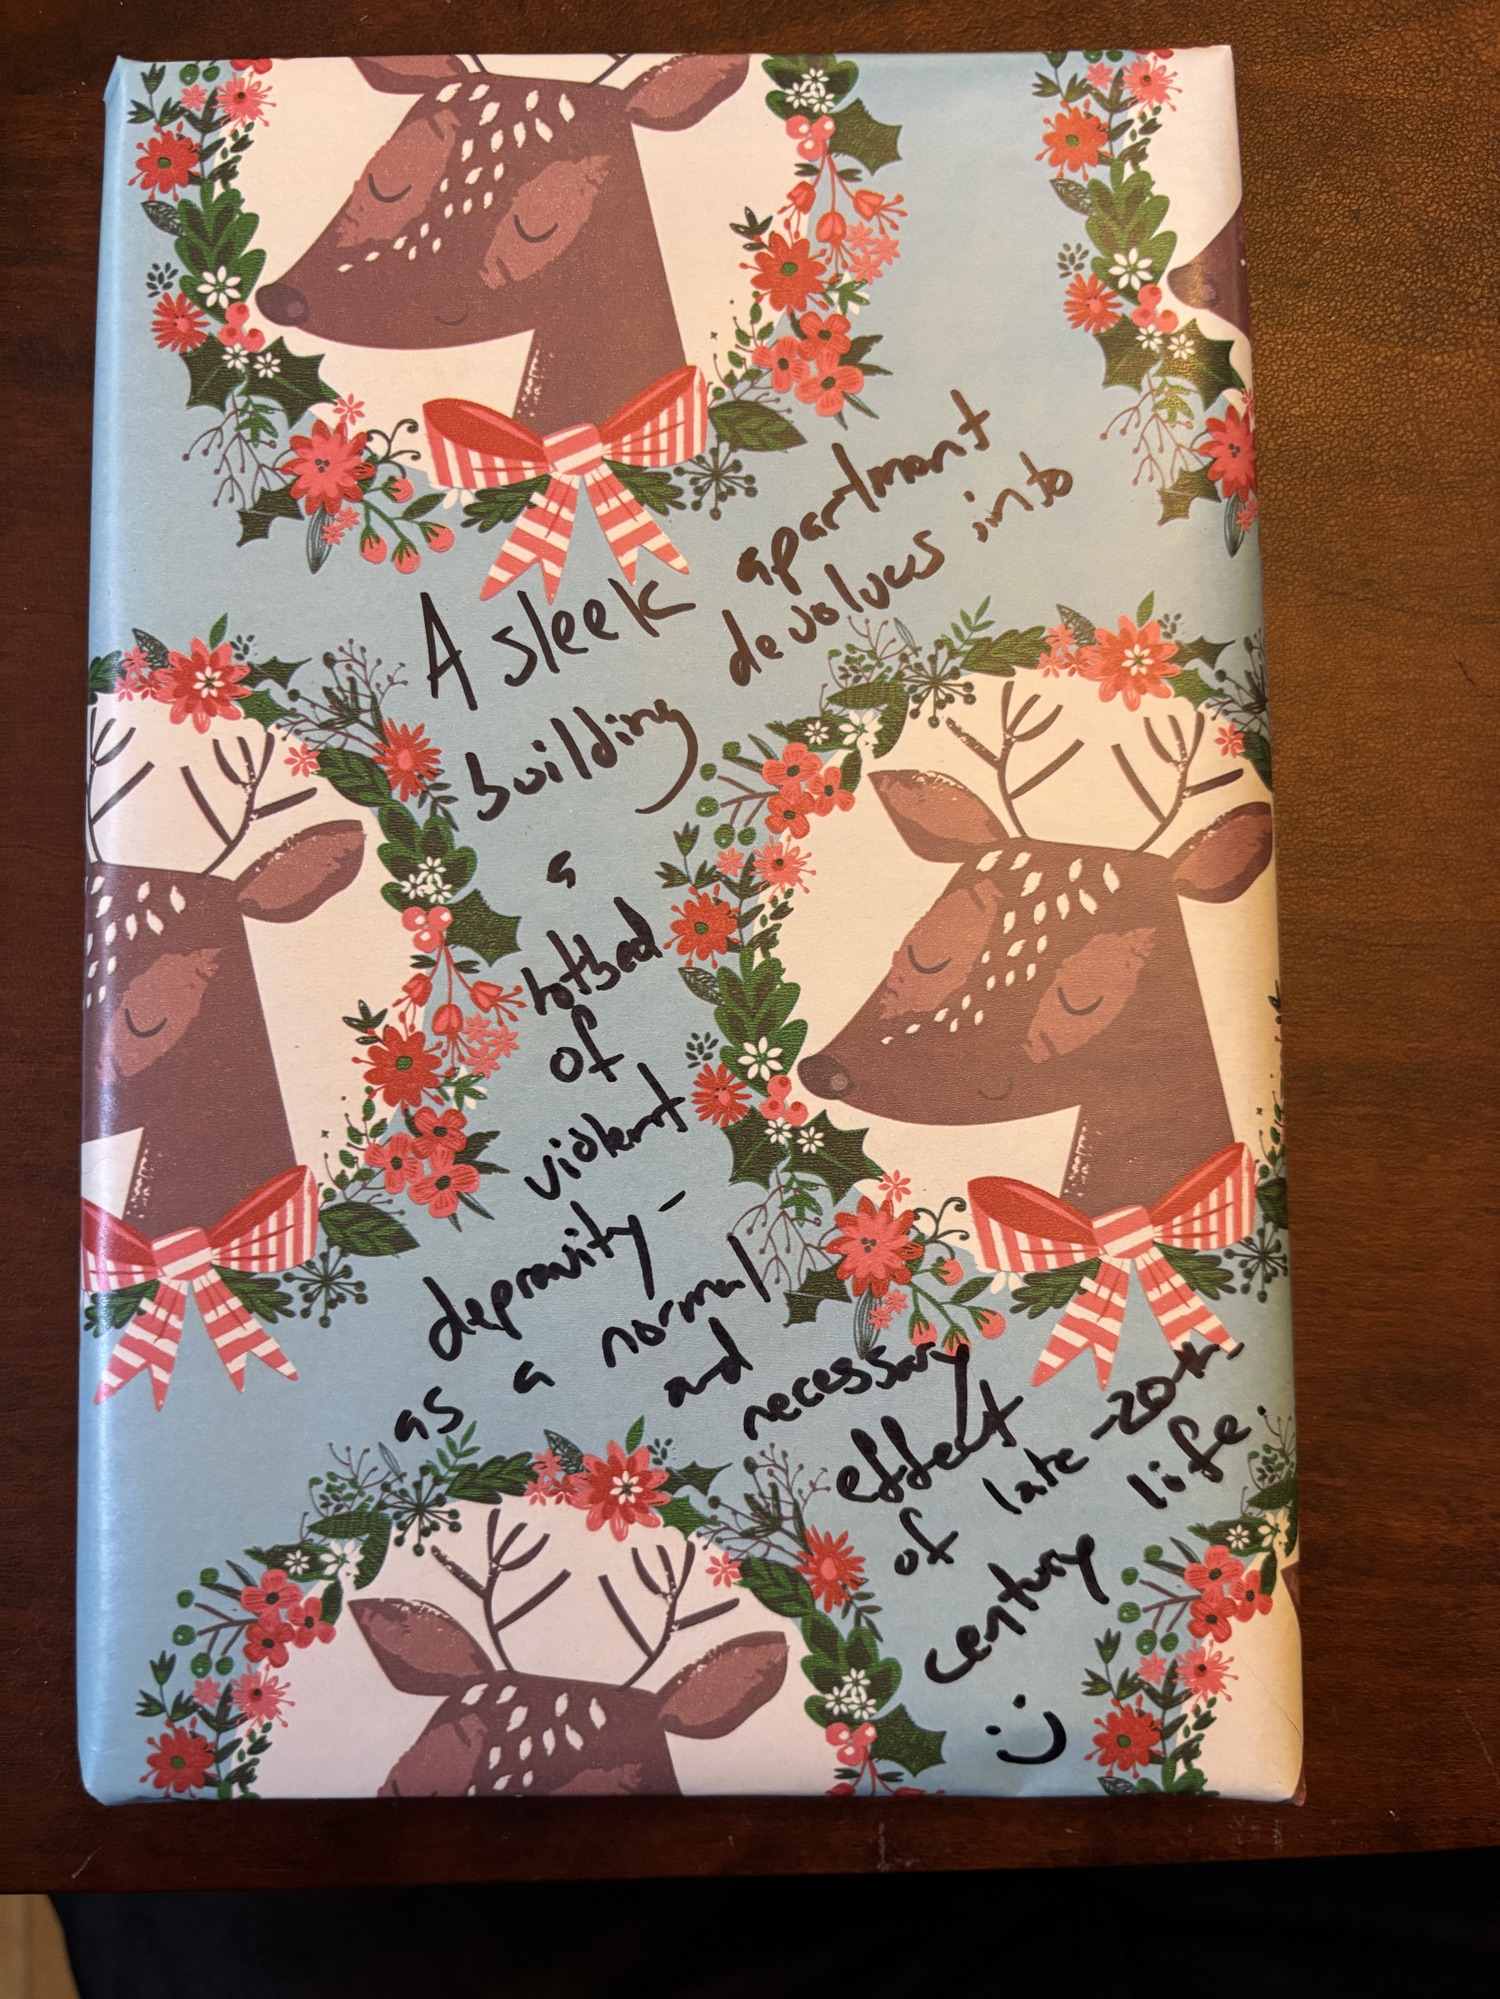 A sleek apartment
building devolves into
a
hotbed
of
violent
depravity-
as a normal
and
necessary
effect
of late-20th
century life.
:)